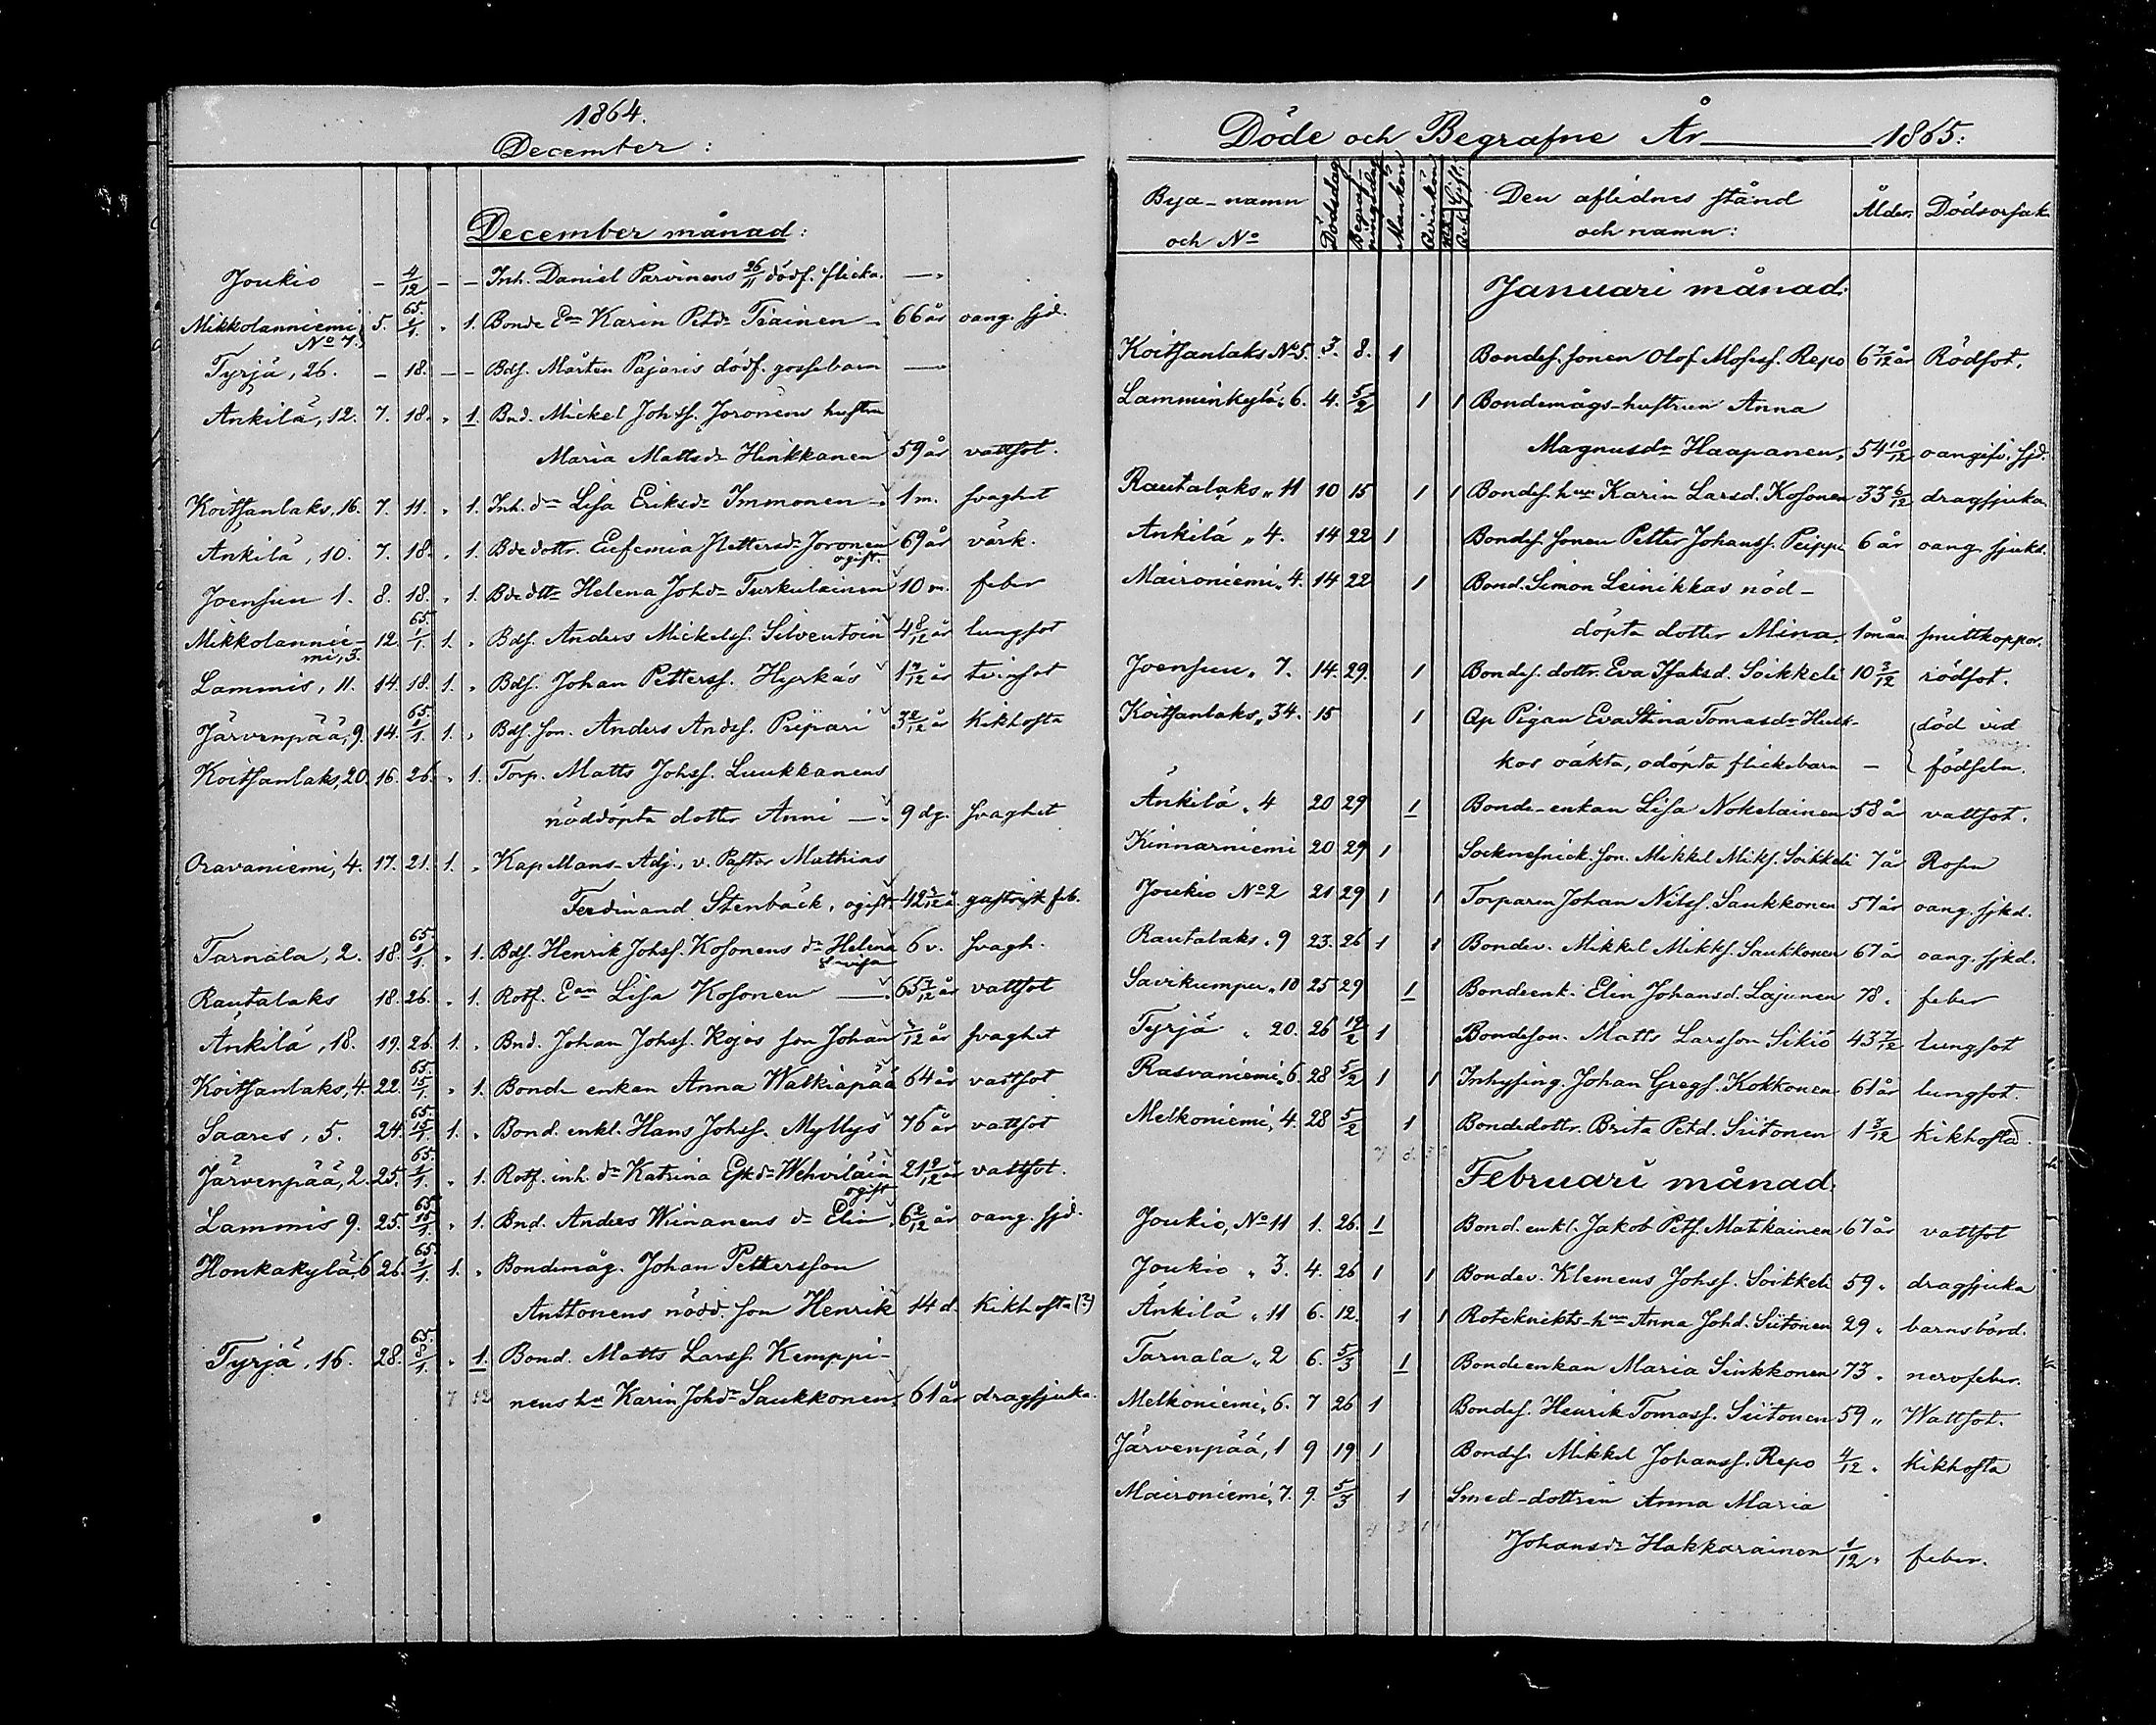 1864.
December:
December månad:
Joukio - 4/12 - - Inh. Daniel Parvinens 26/11 dödf. flicka. —
Mikkolanniemi 5. 65. 1/1. „ 1. Bonde Ean Karin Petdr Tiainen — 66 år oang. sjd.
No 7.
Tyrjä, 26. - 18. - - Bds. Mårten Pajaris dödf. gossebarn —
Ankilä, 12. 7. 18. „ 1. Bnd. Mickel Johss. Joronens hustru
Maria Mattsdr Hinkkanen 59 år vattsot.
Koitsanlaks, 16. 7. 11. „ 1. Inh. dr Lisa Eriksdr Immonen — 1 m. svaghet
Ankilä, 10. 7. 18. „ 1. Bdedottr. Eufemia Pettersdr Joronen 69 år värk.
ogift.
Joensuu 1. 8. 18. „ 1. Bdedttr Helena Johdr Turkulainen 10 m. feber
Mikkolannie- 12. 65. 1/1. 1. „ Bds. Anders Mickelss. Silventoin 4 8/12 år lungsot
mi, 3.
Lammis, 11. 14. 18. 1. „ Bds. Johan Petterss. Hyrkäs 1 7/12 år tvinsot
Järvenpää, 9. 14. 65. 1/1. 1. „ Bds. son. Anders Andss. Piipari 3 2/12 år Kikhosta
Koitsanlaks, 20. 16. 26. „ 1. Torp. Matts Johss. Luukkanens
nöddöpta dotter Anni — 9 dg. svaghet
Oravaniemi, 4. 17. 21. 1. „ Kapellans-Adj., v. Pastor Mathias
Ferdinand Stenbäck, ogift. 42 gastrisk feb.
Tarnala, 2. 18. 65. 1/1. „ 1. Bds. Henrik Johss. Kosonens dr Helena 6 v. svagh.
Rautalaks 18. 26. „ 1. Rotf. Ean Lisa Kosonen — 65 7/12 år vattsot
Ankilä, 18. 19. 26. 1. „ Bnd. Johan Johss. Kojos son Johan /12 år svaghet
Koitsanlaks, 4. 22. 65. 15/1. „ 1. Bonde enkan Anna Walkiapää 64 år vattsot
Saares, 5. 24. 65. 15/1. 1. „ Bond. enkl. Hans Johss. Myllys 76 år vattsot
Järvenpää, 2. 25. 65. 1/1. „ 1. Rotf. inh. dr Katrina Eskdr Wehviläin 21 2/12 år vattsot.
ogift
Lammis 9. 25. 65. 15/1. „ 1. Bnd. Anders Wiinanens dr Elin 6 2/12 år oang. sjd.
Honkakylä, 6 26. 65. 1/1. 1. „ Bondemåg. Johan Pettersson
Anttonens nödd. son Henrik 14 d. Kikhosta (?)
Tyrjä, 16. 28. 65. 8/1. „ 1. Bond. Matts Larss. Kemppi-
7 12 nens hu Karin Johdr Saukkonen 61 år dragsjuka.
Döde och Begrafne År 1865:
Bya-namn och No Dödsdag Begrafningsdag Mankön Qvinkön Gift. Den aflidnes stånd och namn: Ålder. Dödsorsak
Januari månad:
Koitsanlaks No 5. 3. 8. 1 Bondes. sonen Olof Mosess. Repo 6 7/12 år Rödsot.
Lamminkylä „ 6. 4. 5/2 1 1 Bondemågs-hustrun Anna
Magnusdr Haapanen, 54 10/12 oangifv. sjd.
Rautalaks „ 11 10 15 1 1 Bondes. hun Karin Larsd. Kosonen 33 6/12 dragsjuka
Ankilä „ 4. 14 22 1 Bondes. sonen Petter Johanss. Peippo 6 år oang. sjukd.
Maironiemi „ 4. 14 22 1 Bond. Simon Leinikkas nöd-
döpta dotter Mina, 1 mån smittkoppor.
Joensuu „ 7. 14. 29. 1 Bondes. dottr. Eva Isaksd. Soikkeli 10 3/12 rödsot.
Koitsanlaks „ 34. 15 1 Qp Pigan Eva Stina Tomasdr Husk- död vid
kos oäkta, odöpta flickebarn — födseln.
Änkilä „ 4 20 29 1 Bonde-enkan Lisa Nokelainen 58 år vattsot.
Kinnarniemi 20 29 1 Socknesnick. son. Mikkel Miks. Soikkeli 7 år Rosen
Joukio No 2 21 29 1 1 Torparen Johan Nilss. Saukkonen 57 år oang. sjkd.
Rautalaks „ 9 23. 26 1 1 Bondev. Mikkel Mikkss. Saukkonen 67 år oang. sjkd.
Savikumpu „ 10 25 29 1 Bondeenk. Elin Johansd. Lajunen 78 „ feber
Tyrjä „ 20. 26 19/2 1 Bondeson. Matts Larsson Sikiö 43 7/12 lungsot
Rasvaniemi „ 6. 28 5/2 1 1 Inhysing. Johan Gregs. Kokkonen 61 år lungsot.
Melkoniemi, 4. 28 5/2 1 Bondedottr. Brita Petd. Siitonen 1 3/12 kikhosta.
Februari månad.
Joukio, No 11 1. 26. 1 Bond. enkl. Jakob Pets. Matikainen 67 år vattsot
Joukio „ 3. 4. 26 1 1 Bondev. Klemens Johss. Soikkeli 59 „ dragsjuka
Änkilä „ 11 6. 12. 1 1 Roteknekts-hun Anna Johd. Siitonen 29 „ barnsbörd.
Tarnala „ 2 6. 5/3 1 Bondeenkan Maria Sinkkonen 73 „ nervfeber.
Melkoniemi „ 6. 7 26 1 Bondes. Henrik Tomass. Siitonen 59 „ Wattsot.
Järvenpää, 1 9 19 1 Bondes. Mikkel Johanss. Repo 4/12 „ kikhosta
Maironiemi, 7. 9. 5/3 1 Smed-dottren Anna Maria
Johansdr Hakkarainen 1/12 „ feber.